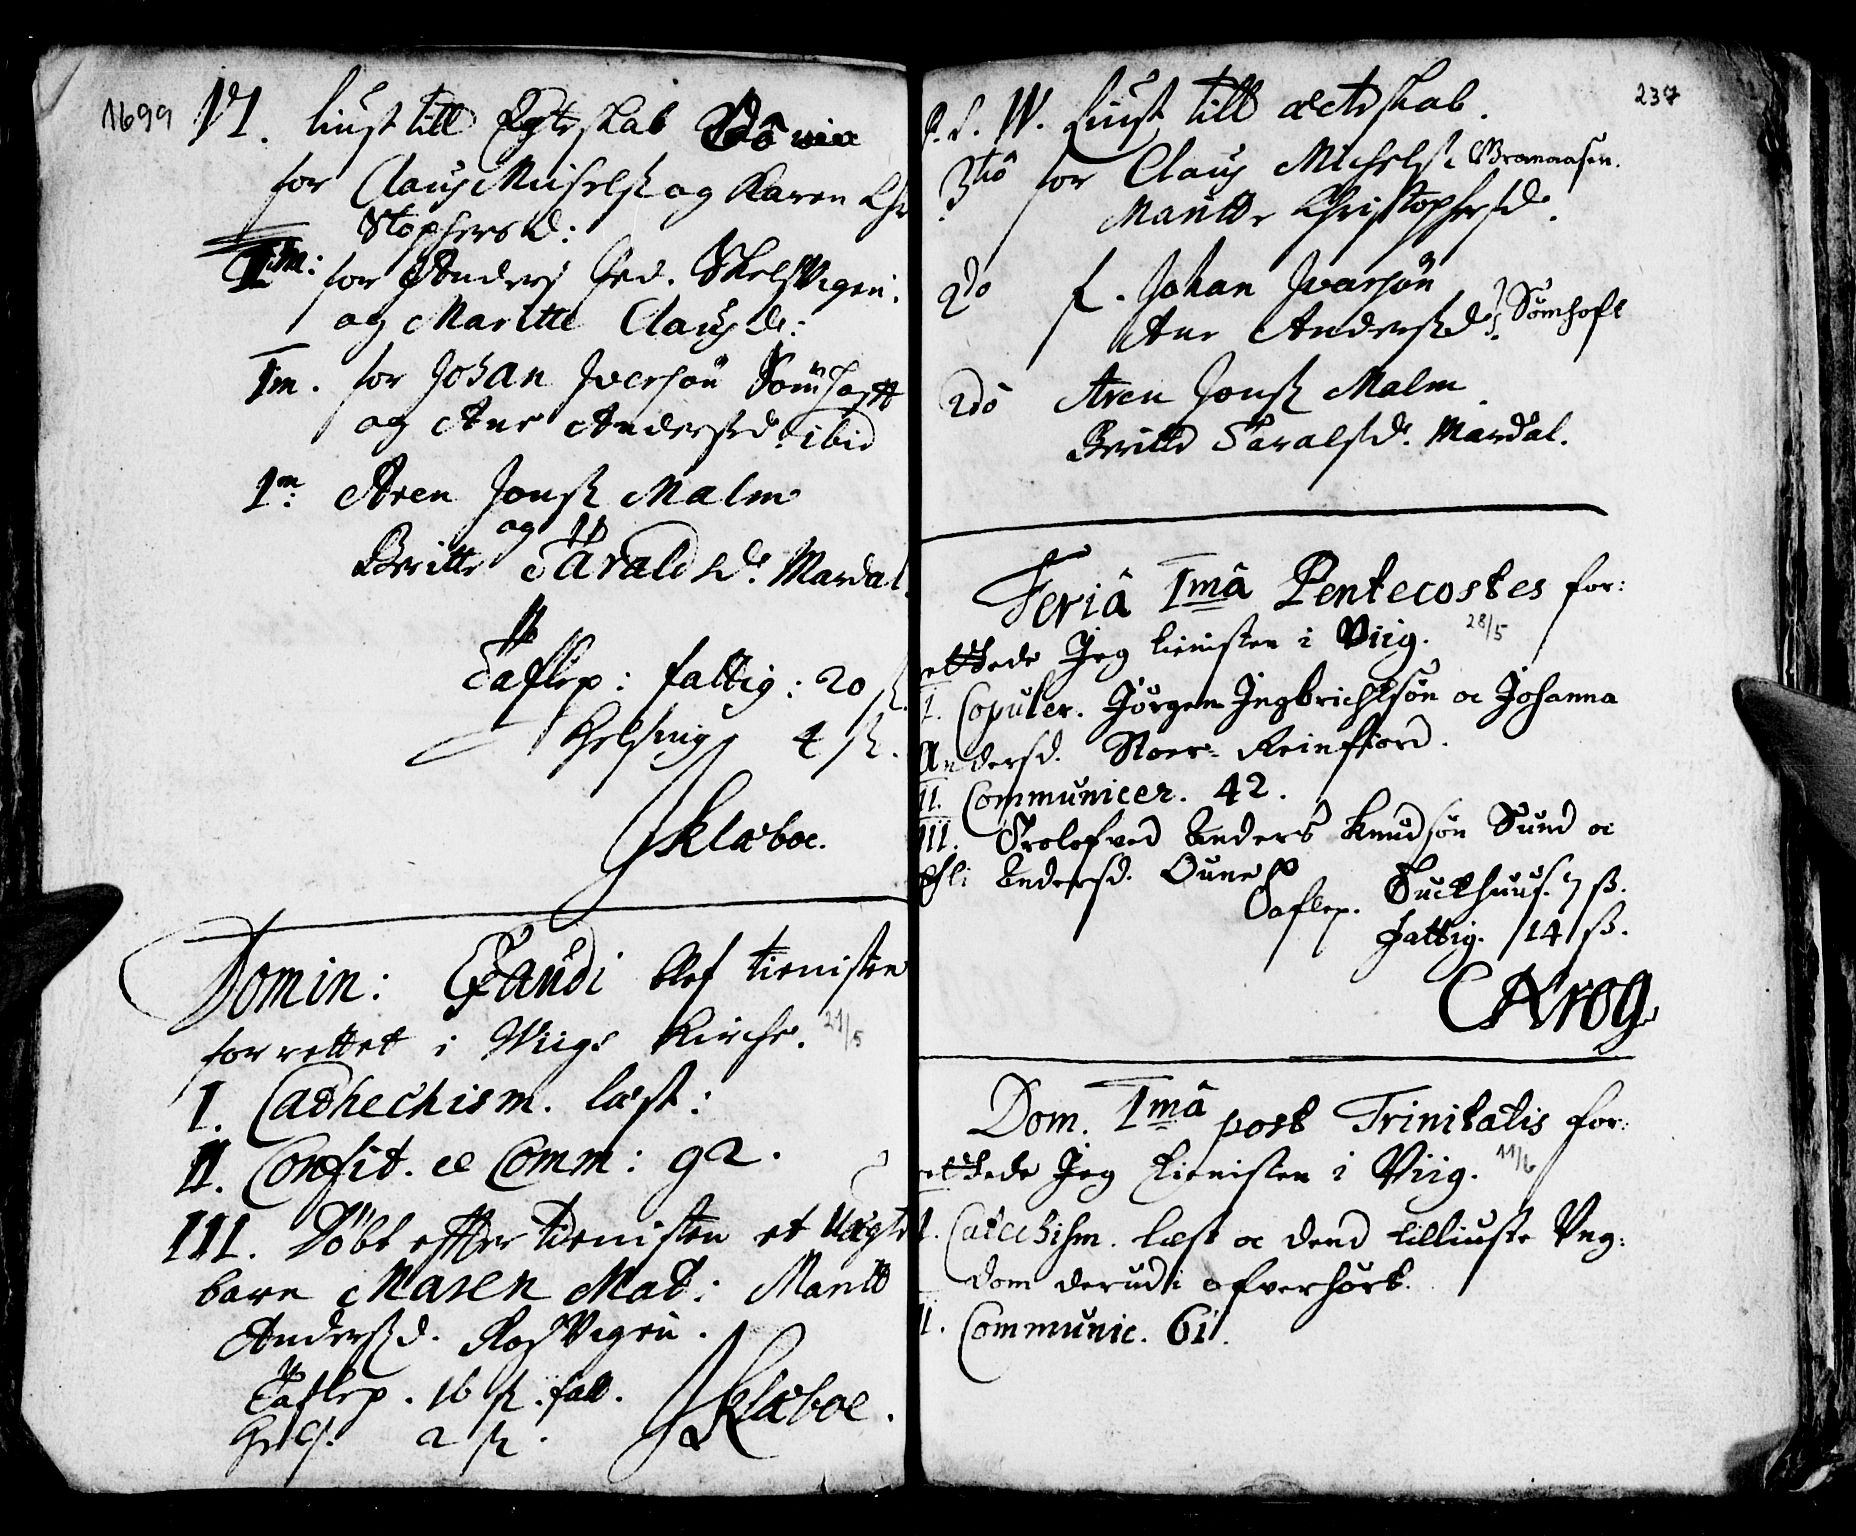 1699
VI. liust till Egteskab 2do vice
for Claus Michelss: og Karen Chr
Stophersd:
Im: for Anders Ped. SkelsVigen.
og Maritte Clausd:
Im. for Johan Iversön Sömhofft
og Ane Andersd. ibid
1m: Aren Jonss: Malm
og
Beritte Taralds d: Mardal.
Taflep: fattig: 20 ss.
Helsing 4 ss.
JKlæboe.
Domin: Exaudi blef tienisten
forrettet i Wiigs Kirche. 21/5
I. Cathechism. læst:
II. Confit. et Comm: 92.
III. Döbt effter tienisten et Uægte
barn Maren Mad: Maritte
Andersd. RosVigen.
Taflep. 16 ss. fatt.
2 ss.
JKlæboe.
237
IV. Liust till ecteskab.
3tiô for Claus Michelss: Branaasen.
Maritte Christophersd.
2do f. Johan Ivarsön
Ane Andersd. Sömhoft
2dô Aren Jonss: Malm
Beritte Taralsd. Mardal.
Feriâ Imâ Pentecostes for:
rettede Jeg tienisten i Viig. 28/5
I. Copuler. Jörgen Ingbrichtsön oc Johanna
Andersd. Stoer-Reinfiord.
II. Communicer. 42.
III. Trolofved Anders Knudsön Sund oc
Eli Andersd. Oune
Taflep. Tuckthuus. 7 ss.
Fattig. 14 ss.
CKrog
Dom. Imâ post Trinitatis for:
rettede Jeg tienisten i Viig. 11/6
I. Catechism. læst oc dend tilliuste Ung:
dom derudi ofverhört.
II. Communic. 61.